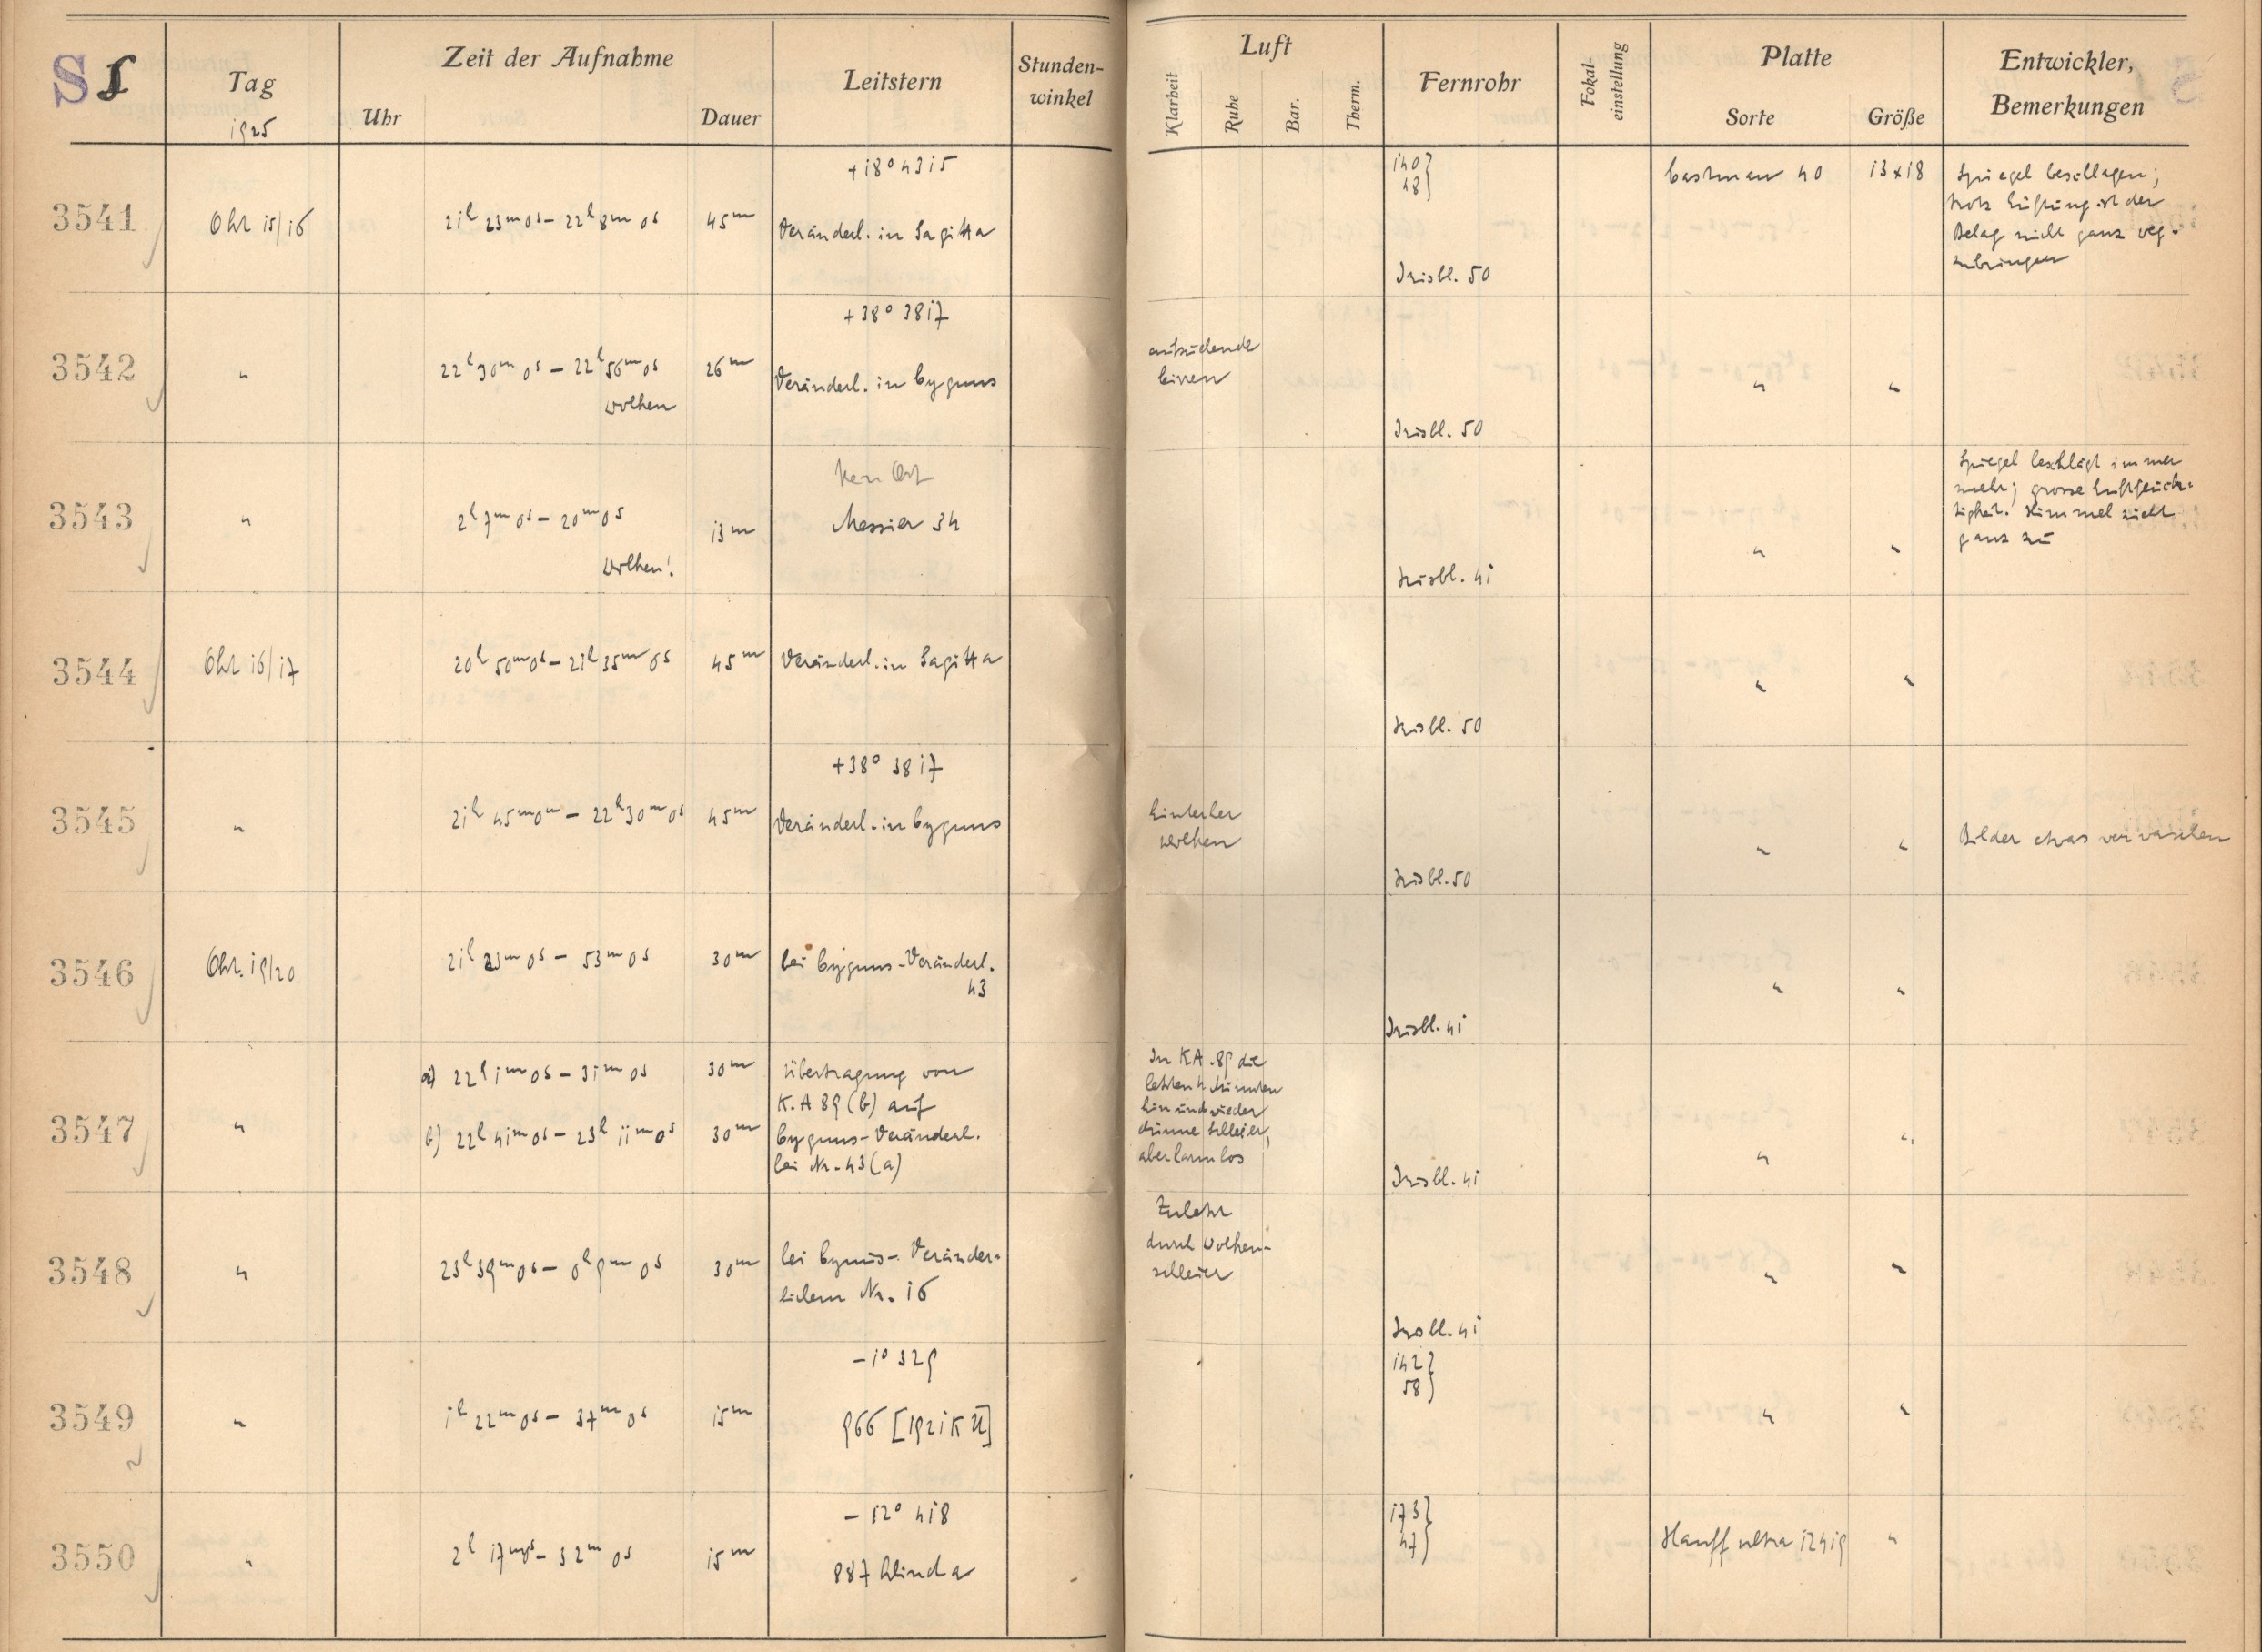 S S
Tag
1925
Zeit der Aufnahme
Uhr
Dauer
Leitstern
Stunden-
winkel
Luft
Klarheit
Ruhe
Bar.
Therm.
Fernrohr
Fokal-
einstellung
Platte
Sorte
Größe
Entwickler,
Bemerkungen
3541
Okt 15/16
21h 23m 0s – 22h 8m 0s
45m
+18° 4315
Veränderl. in Sagitta
140
48
Irisbl. 50
Eastman 40
13x18
Spiegel beschlagen;
trotz Lüftung ist der
Belag nicht ganz weg-
zubringen
3542
"
22h 30m 0s – 22h 56m 0s
Wolken
26m
+38° 3817
Veränderl. in Cygnus
Irisbl. 50
"
"
3543
"
2h 7m 0s – 20m 0s
Wolken!
13m
Messier 34
Irisbl. 41
"
"
Spiegel beschlägt immer
mehr; grosse Luftfeuch-
tigkeit. Himmel zieht
ganz zu
3544
Okt 16/17
20h 50m 0s – 21h 35m 0s
45m
Veränderl. in Sagitta
Irisbl. 50
"
"
3545
"
21h 45m 0m – 22h 30m 0s
45m
+38° 3817
Veränderl. in Cygnus
Wolken
Irisbl. 50
"
"
Bilder etwas verwaschen
3546
Okt. 19/20
21h 23m 0s – 53m 0s
30m
bei Cygnus-Veränderl.
43
Irisbl. 41
"
"
3547
"
a) 22h 1m 0s – 31m 0s
30m
b) 22h 41m 0s – 23h 11m 0s
30m
Übertragung von
K.A 89 (b) auf
Cygnus-Veränderl.
bei Nr. 43 (a)
In KA. 89 die
letzten 4 Minuten
hin und wieder
dünne Schleier,
aber harmlos
Irisbl. 41
"
"
3548
"
23h 39m 0s – 0h 9m 0s
30m
bei Cygnus-Veränder-
lichem Nr. 16
Zuletzt
durch Wolken-
schleier
Irisbl. 41
"
"
3549
"
1h 22m 0s – 37m 0s
15m
–1° 329
966 [1921 KU]
142
58
"
"
3550
"
2h 17m 0s – 32m 0s
15m
– 12° 418
887 Alinda
173
47
Hauff ultra 12419
"